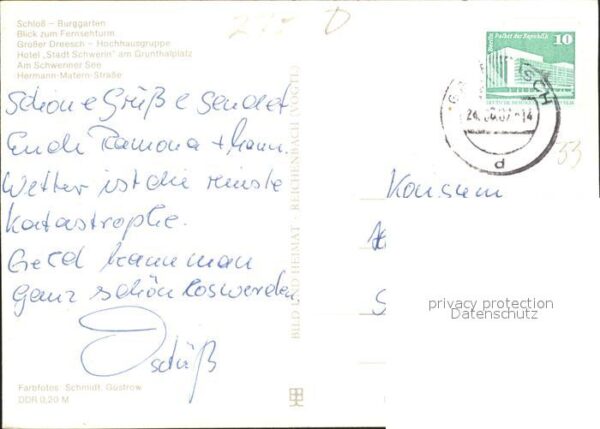 Schloß – Burggarten
Blick zum Fernsehturm
Großer Dreesch – Hochhausgruppe
Hotel „Stadt Schwerin" am Grunthalplatz
Am Schweriner See
Hermann-Matern-Straße
Schöne Grüße sendet
Euch Ramona + Mann.
Wetter ist die reinste
Katastrophe.
Geld kann man
Ganz schön loswerden.
Tschüß
Farbfotos: Schmidt, Güstrow
DDR 0,20 M
BILD UND HEIMAT · REICHENBACH (VOGTL)
Palast der Republik
10
d
33
Konsum
privacy protection
Datenschutz